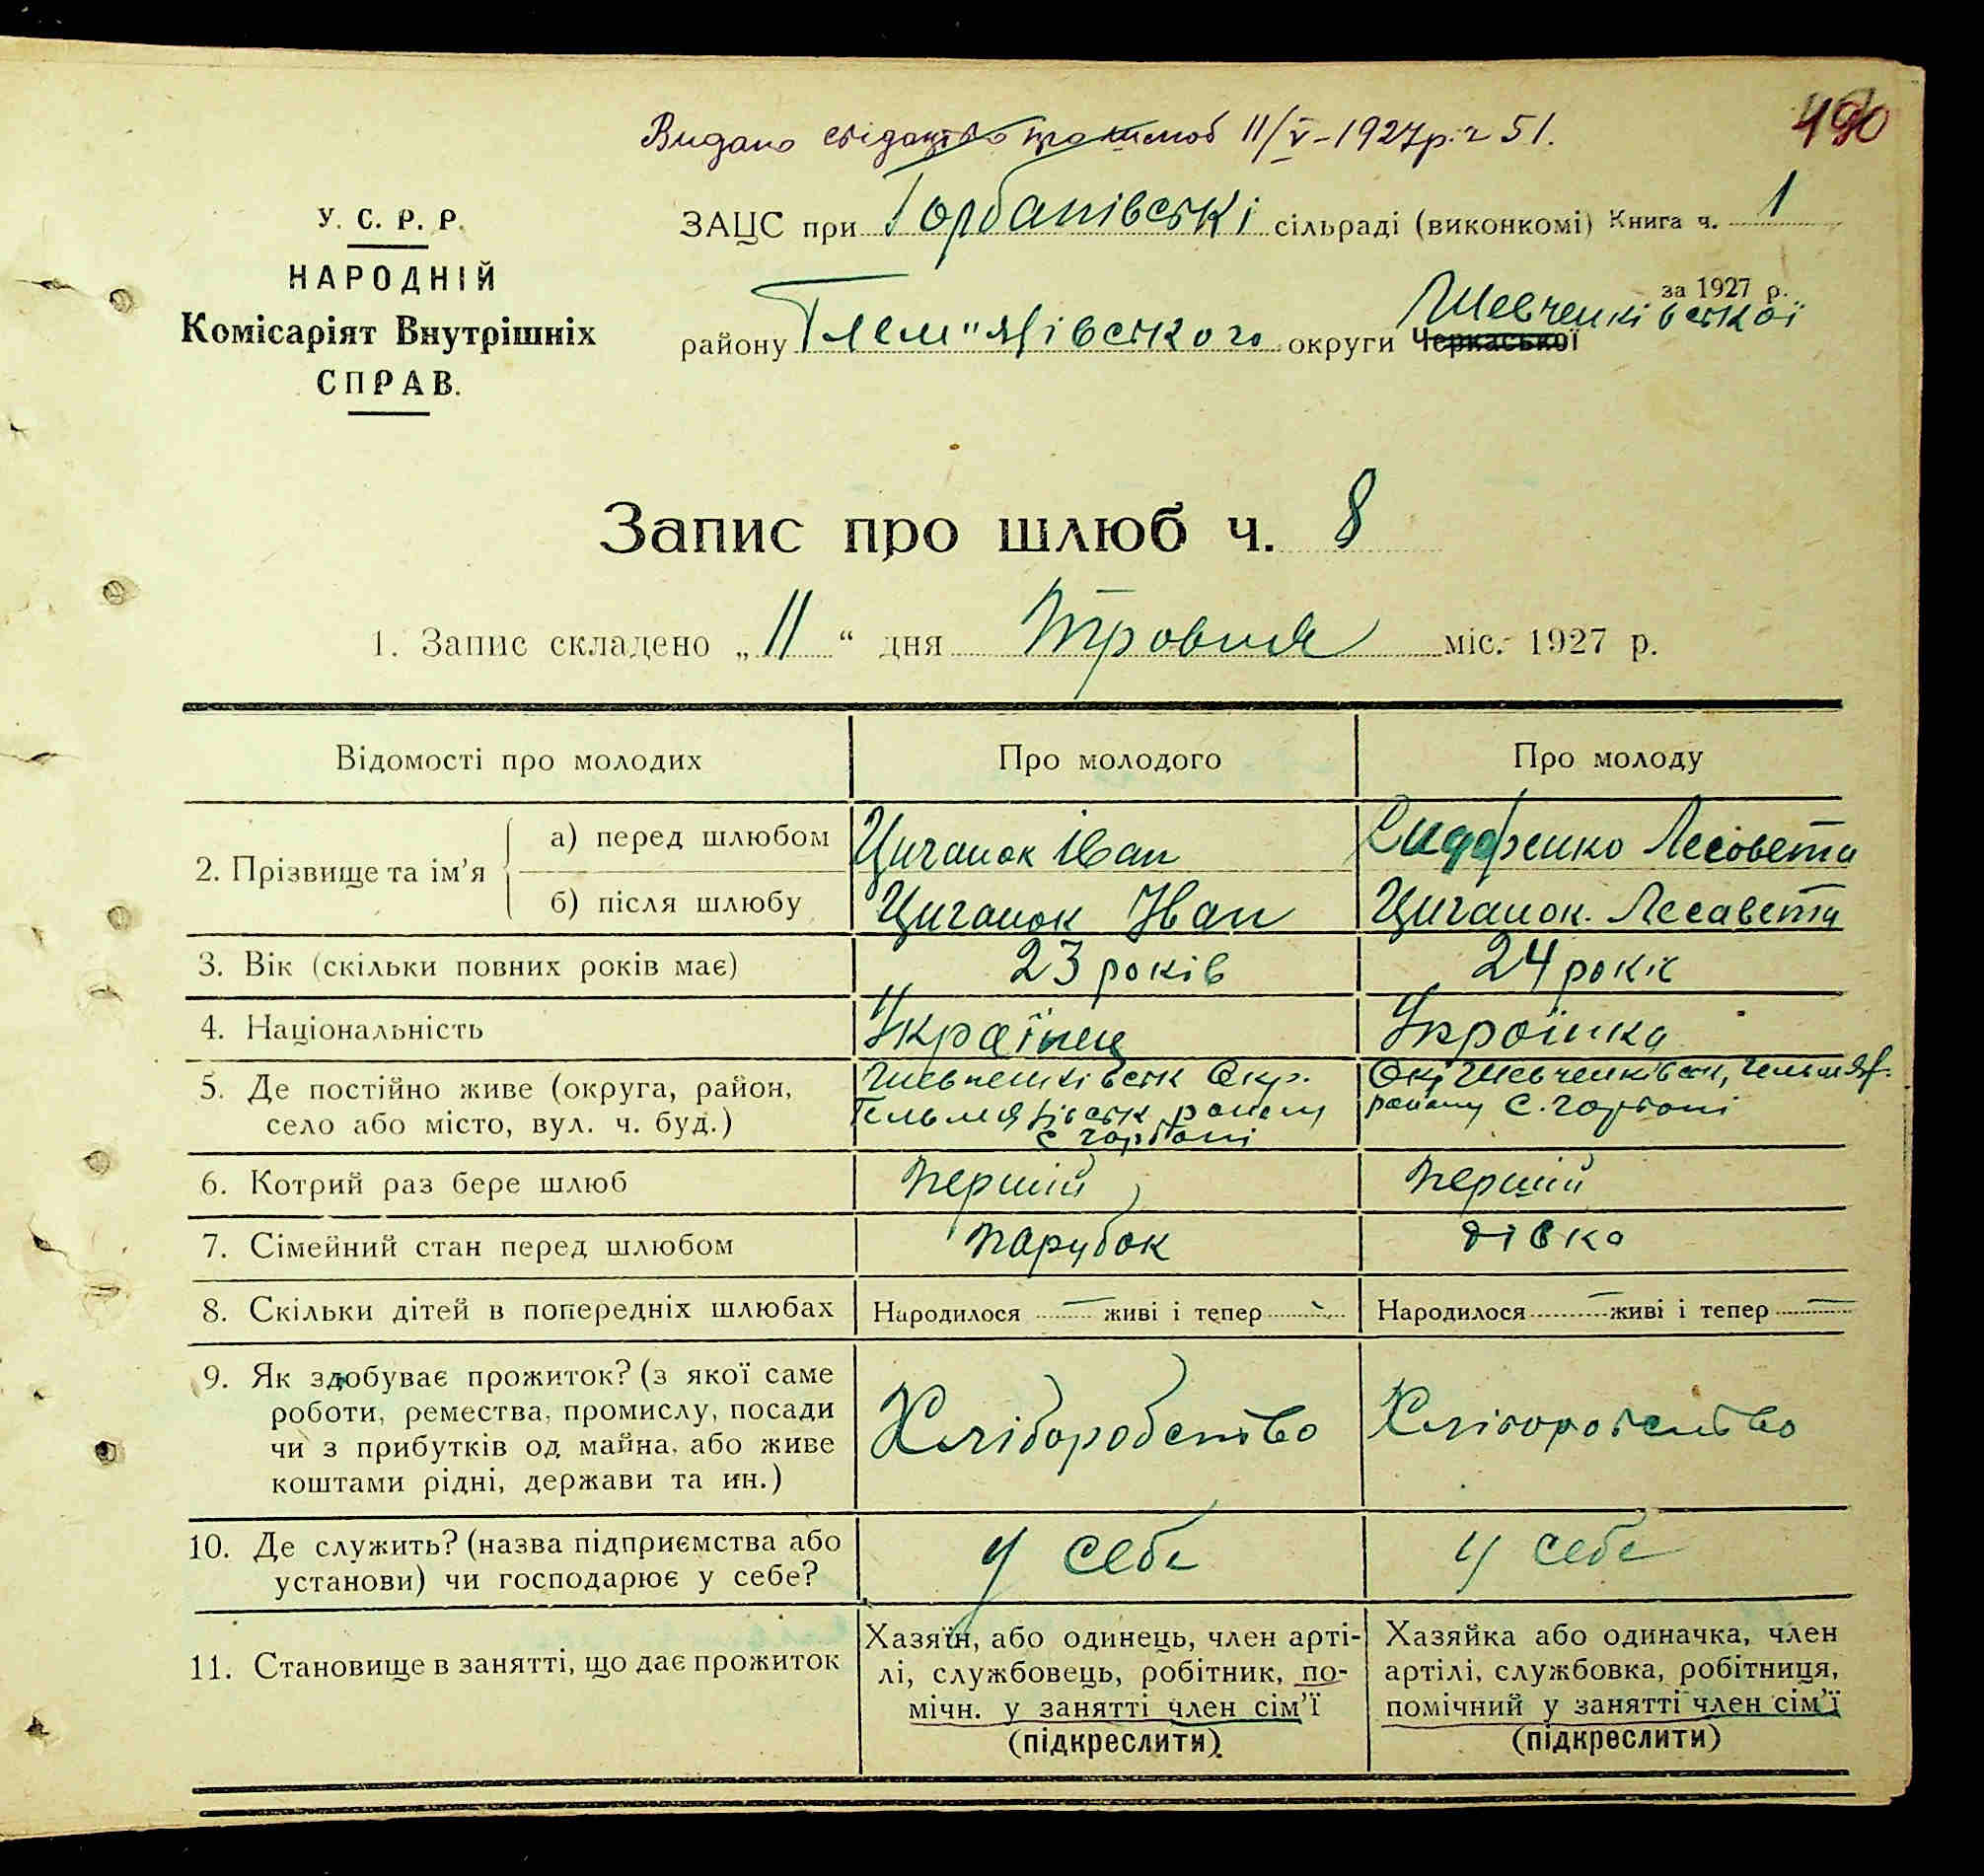 Видано свідоцтво про шлюб 11/V-1927р. ч 51.
490
У. С. Р. Р.
НАРОДНІЙ
Комісаріят Внутрішніх
СПРАВ.
ЗАЦС при Горбанівські сільраді (виконкомі) Книга ч. 1
за 1927 р.
району Гелм"язівського округи Черкаської Шевченківської
Запис про шлюб ч. 8
1. Запис складено „11“ дня Тровня міс. 1927 р.
Відомості про молодих Про молодого Про молоду
2. Прізвище та ім’я
а) перед шлюбом Циганок Іван Сидоренко Лесовета
б) після шлюбу Циганок Іван Циганок. Лесавета
3. Вік (скільки повних років має) 23 років 24 років
4. Національність Українец Украінка
5. Де постійно живе (округа, район,
село або місто, вул. ч. буд.)
Шевченківськ Окр.
Гельмязівськ району
с горбані
Окр Шевченківськ, Гельмяз.
району С. Горбані
6. Котрий раз бере шлюб перший перший
7. Сімейний стан перед шлюбом парубок дівка
8. Скільки дітей в попередніх шлюбах Народилося — живі і тепер — Народилося — живі і тепер —
9. Як здобуває прожиток? (з якої саме
роботи, ремества, промислу, посади
чи з прибутків од майна, або живе
коштами рідні, держави та ин.)
Хліборобство Хліборобство
10. Де служить? (назва підприємства або
установи) чи господарює у себе?
у себе у себе
11. Становище в занятті, що дає прожиток
Хазяїн, або одинець, член арті-
лі, службовець, робітник, по-
мічн. у занятті член сім’ї
(підкреслити)
Хазяйка або одиначка, член
артілі, службовка, робітниця,
помічний у занятті член сім’ї
(підкреслити)